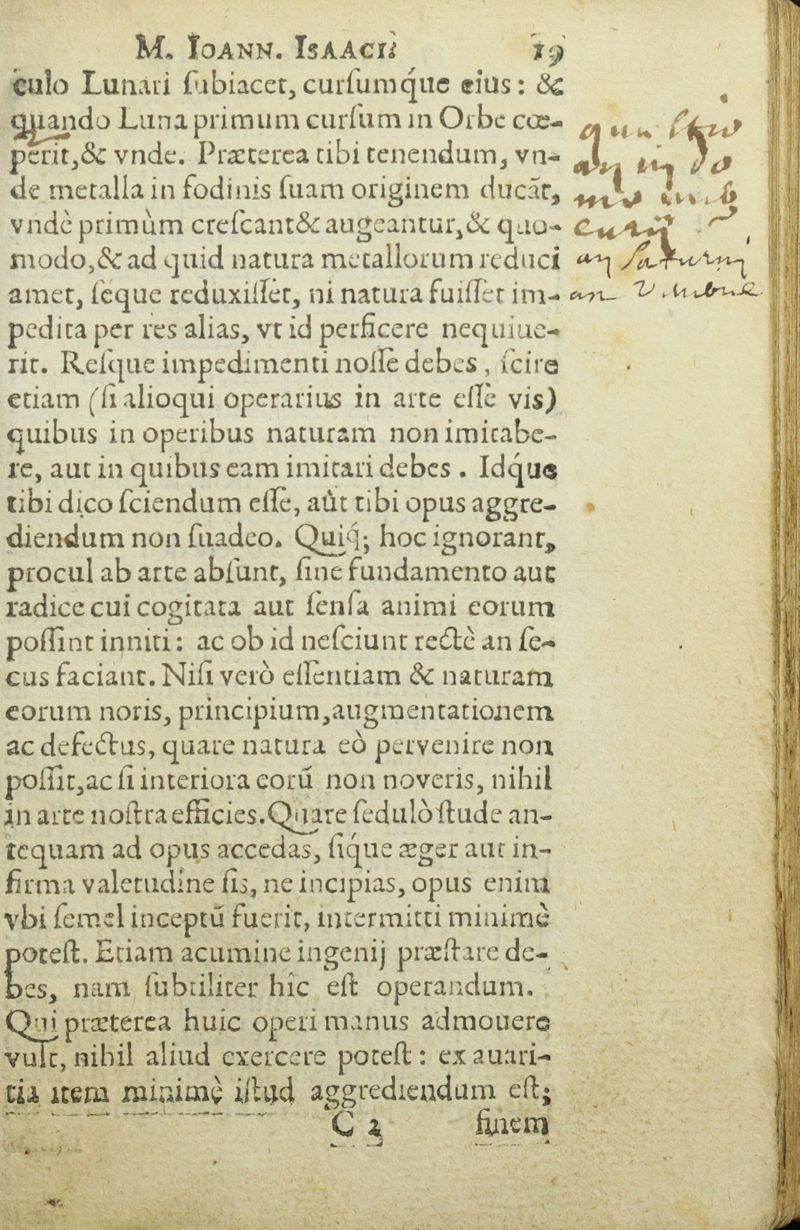 M. IOANN. ISAACII 19
culo Lunari ſubiacet, curſumque eius: &
quando Luna primum curſum in Orbe cœ-
perit, & vnde. Præterea tibi tenendum, vn-
de metalla in fodinis ſuam originem ducāt,
vndè primùm creſcant & augeantur, & quo-
modo, & ad quid natura metallorum reduci
amet, ſeque reduxiſſet, ni natura fuiſſet im-
pedita per res alias, vt id perficere nequiue-
rit. Reſque impedimenti noſſe debes, ſcire
etiam (ſi alioqui operarius in arte eſſe vis)
quibus in operibus naturam non imitabe-
re, aut in quibus eam imitari debes. Idque
tibi dico ſciendum eſſe, aût tibi opus aggre-
diendum non ſuadeo. Quiq; hoc ignorant,
procul ab arte abſunt, ſine fundamento aut
radice cui cogitata aut ſenſa animi eorum
poſſint inniti: ac ob id neſciunt rectè an ſe-
cus faciant. Niſi verò eſſentiam & naturam
eorum noris, principium, augmentationem
ac defectus, quare natura eò pervenire non
poſſit, ac ſi interiora eorū non noveris, nihil
in arte noſtra efficies. Quare ſedulò ſtude an-
tequam ad opus accedas, ſique æger aut in-
firma valetudine ſis, ne incipias, opus enim
vbi ſemel inceptū fuerit, intermitti minimè
poteſt. Etiam acumine ingenij præſtare de-
bes, nam ſubtiliter hîc eſt operandum.
Qui præterea huic operi manus admouere
vult, nihil aliud exercere poteſt: ex auari-
tia item minimè iſtud aggrediendum eſt;
C 2 finem